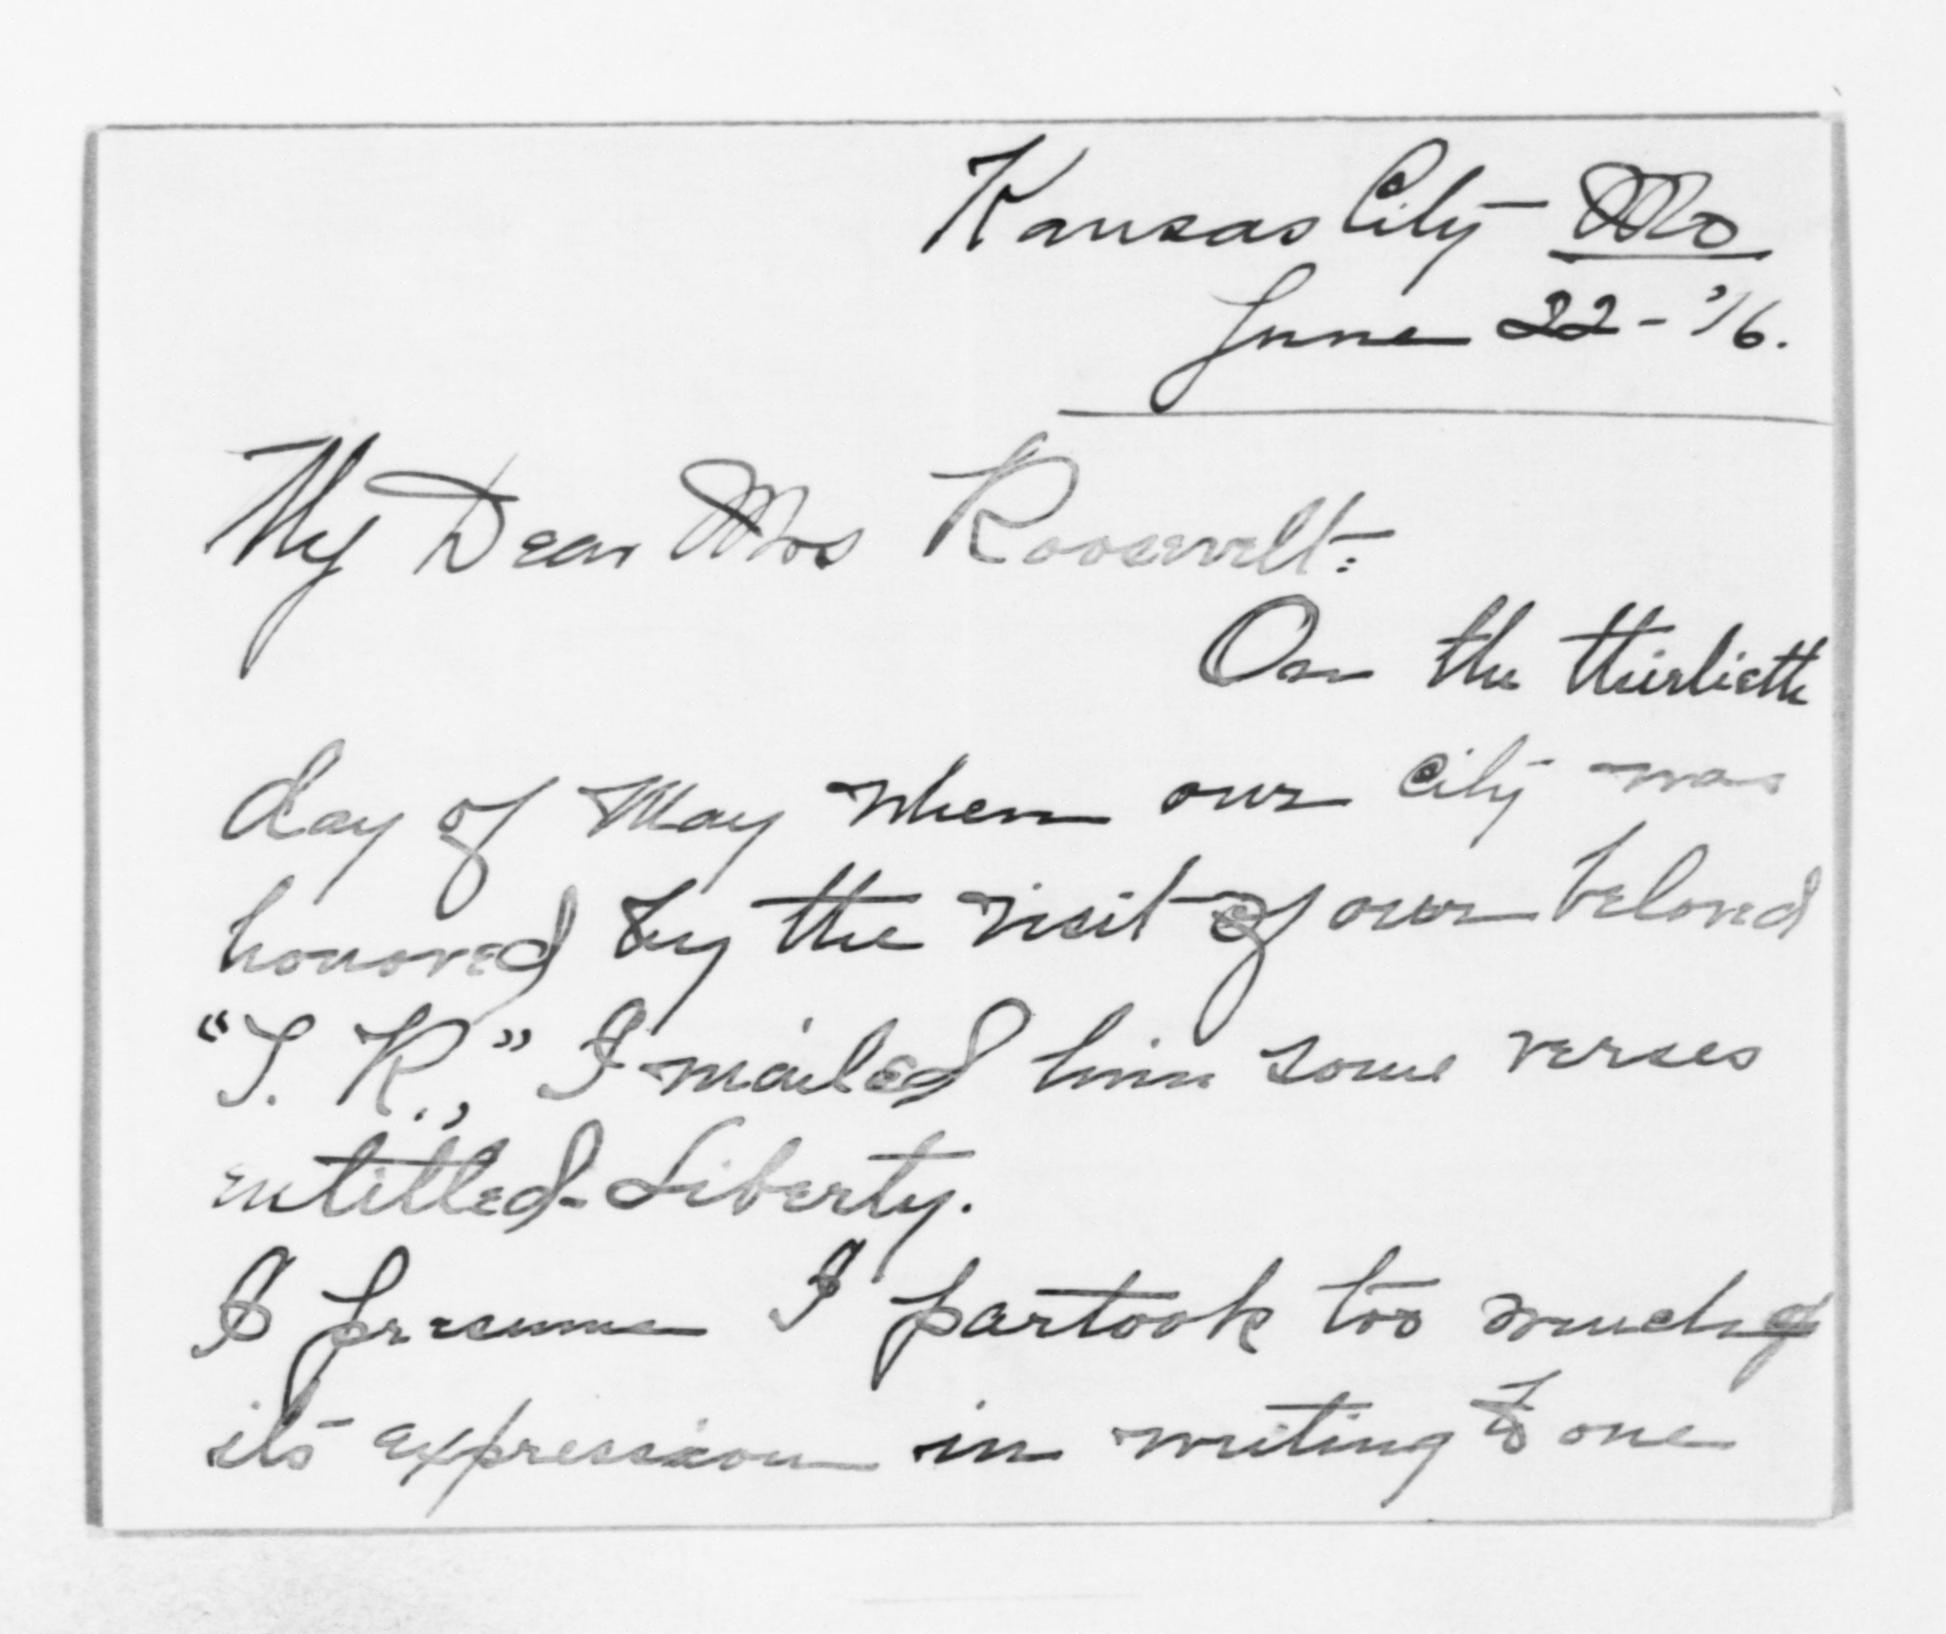 Kansas City Mo
June 22-'16.
My Dear Mrs Roosevelt:
On the thirtieth
day of May when our city was
honored by the visit of our beloved
"T. R.," I mailed him some verses
entitled - Liberty.
I presume I partook too much of
its expression in writing to one